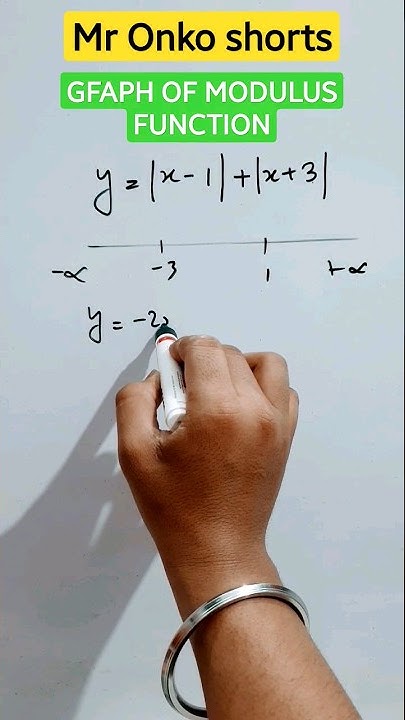 Mr Onko shorts
GFAPH OF MODULUS
FUNCTION
y = |x - 1| + |x + 3|
-∝ -3 1 +∝
y = -2x